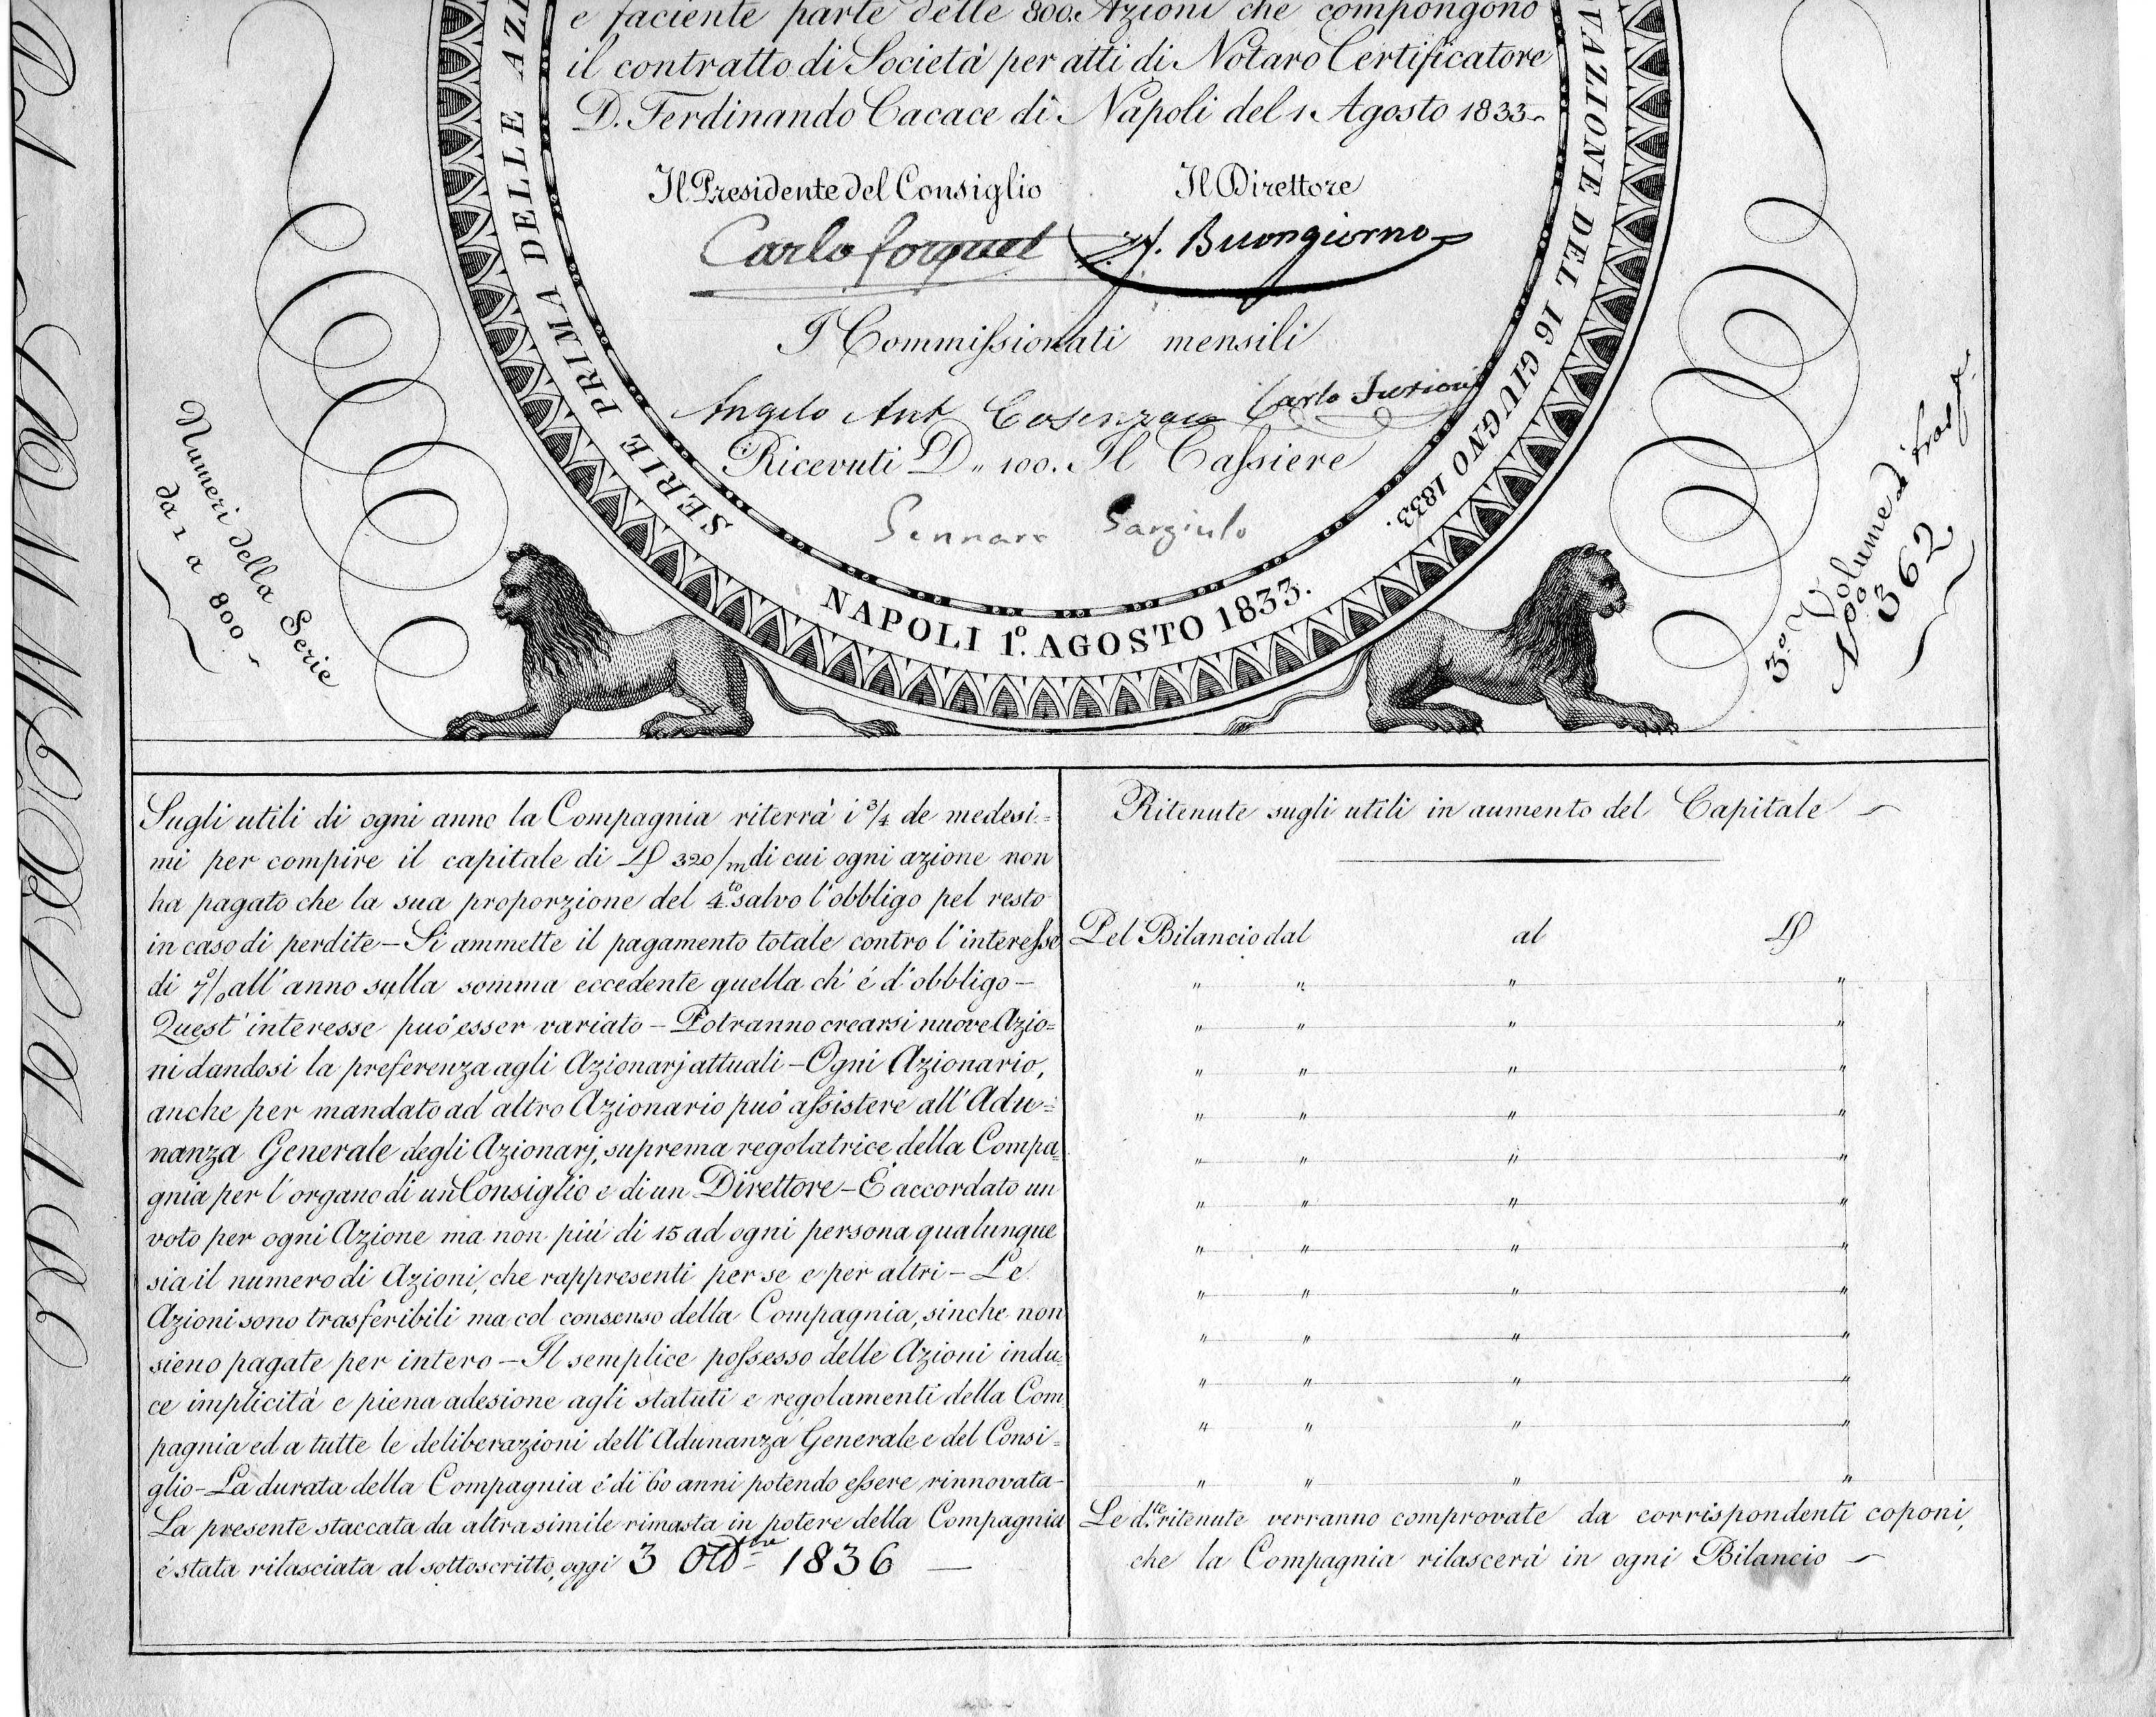 e faciente parte delle 800. Azioni che compongono
il contratto di Società per atti di Notaro Certificatore
D. Ferdinando Cacace di Napoli del 1 Agosto 1833
Il Presidente del Consiglio Il Direttore
Carlo Forquet Buongiorno
I Commissionati mensili
Angelo Ant Carlo
Ricevuti D. 100. Il Cassiere
Gennaro Gargiulo
SERIE PRIMA DELLE AZI
OVAZIONE DEL 16 GIUGNO 1833.
NAPOLI 1º. AGOSTO 1833.
Numeri della Serie
da 1 a 800
3º Volume di trasf.
Nº 362
Sugli utili di ogni anno la Compagnia riterrà i 3/4 de medesi=
mi per compire il capitale di D 320/m di cui ogni azione non
ha pagato che la sua proporzione del 4to. salvo l'obbligo pel resto
in caso di perdite – Si ammette il pagamento totale contro l'interesse
di all'anno sulla somma eccedente quella ch' é d'obbligo –
Quest' interesse puó esser variato – Potranno crearsi nuove Azio=
ni dandosi la preferenza agli Azionarj attuali – Ogni Azionario,
anche per mandato ad altro Azionario puó assistere all'Adu=
nanza Generale degli Azionarj, suprema regolatrice della Compa=
gnia per l'organo di un Consiglio e di un Direttore – É accordato un
voto per ogni Azione ma non piú di 15 ad ogni persona qualunque
sia il numero di Azioni, che rappresenti per se e per altri – Le
Azioni sono trasferibili ma col consenso della Compagnia, sinche non
sieno pagate per intero – Il semplice possesso delle Azioni indu=
ce implicità e piena adesione agli statuti e regolamenti della Com
pagnia ed a tutte le deliberazioni dell'Adunanza Generale e del Consi=
glio – La durata della Compagnia é di 60 anni potendo essere rinnovata –
La presente staccata da altra simile rimasta in potere della Compagnia
é stata rilasciata al sottoscritto, oggi 3 Ottbre 1836
Ritenute sugli utili in aumento del Capitale
Pel Bilancio dal al D
" " " "
" " " "
" " " "
" " " "
" " " "
" " " "
" " " "
" " " "
" " " "
" " " "
" " " "
" " " "
Le dte. ritenute verranno comprovate da corrispondenti coponi,
che la Compagnia rilascerà in ogni Bilancio